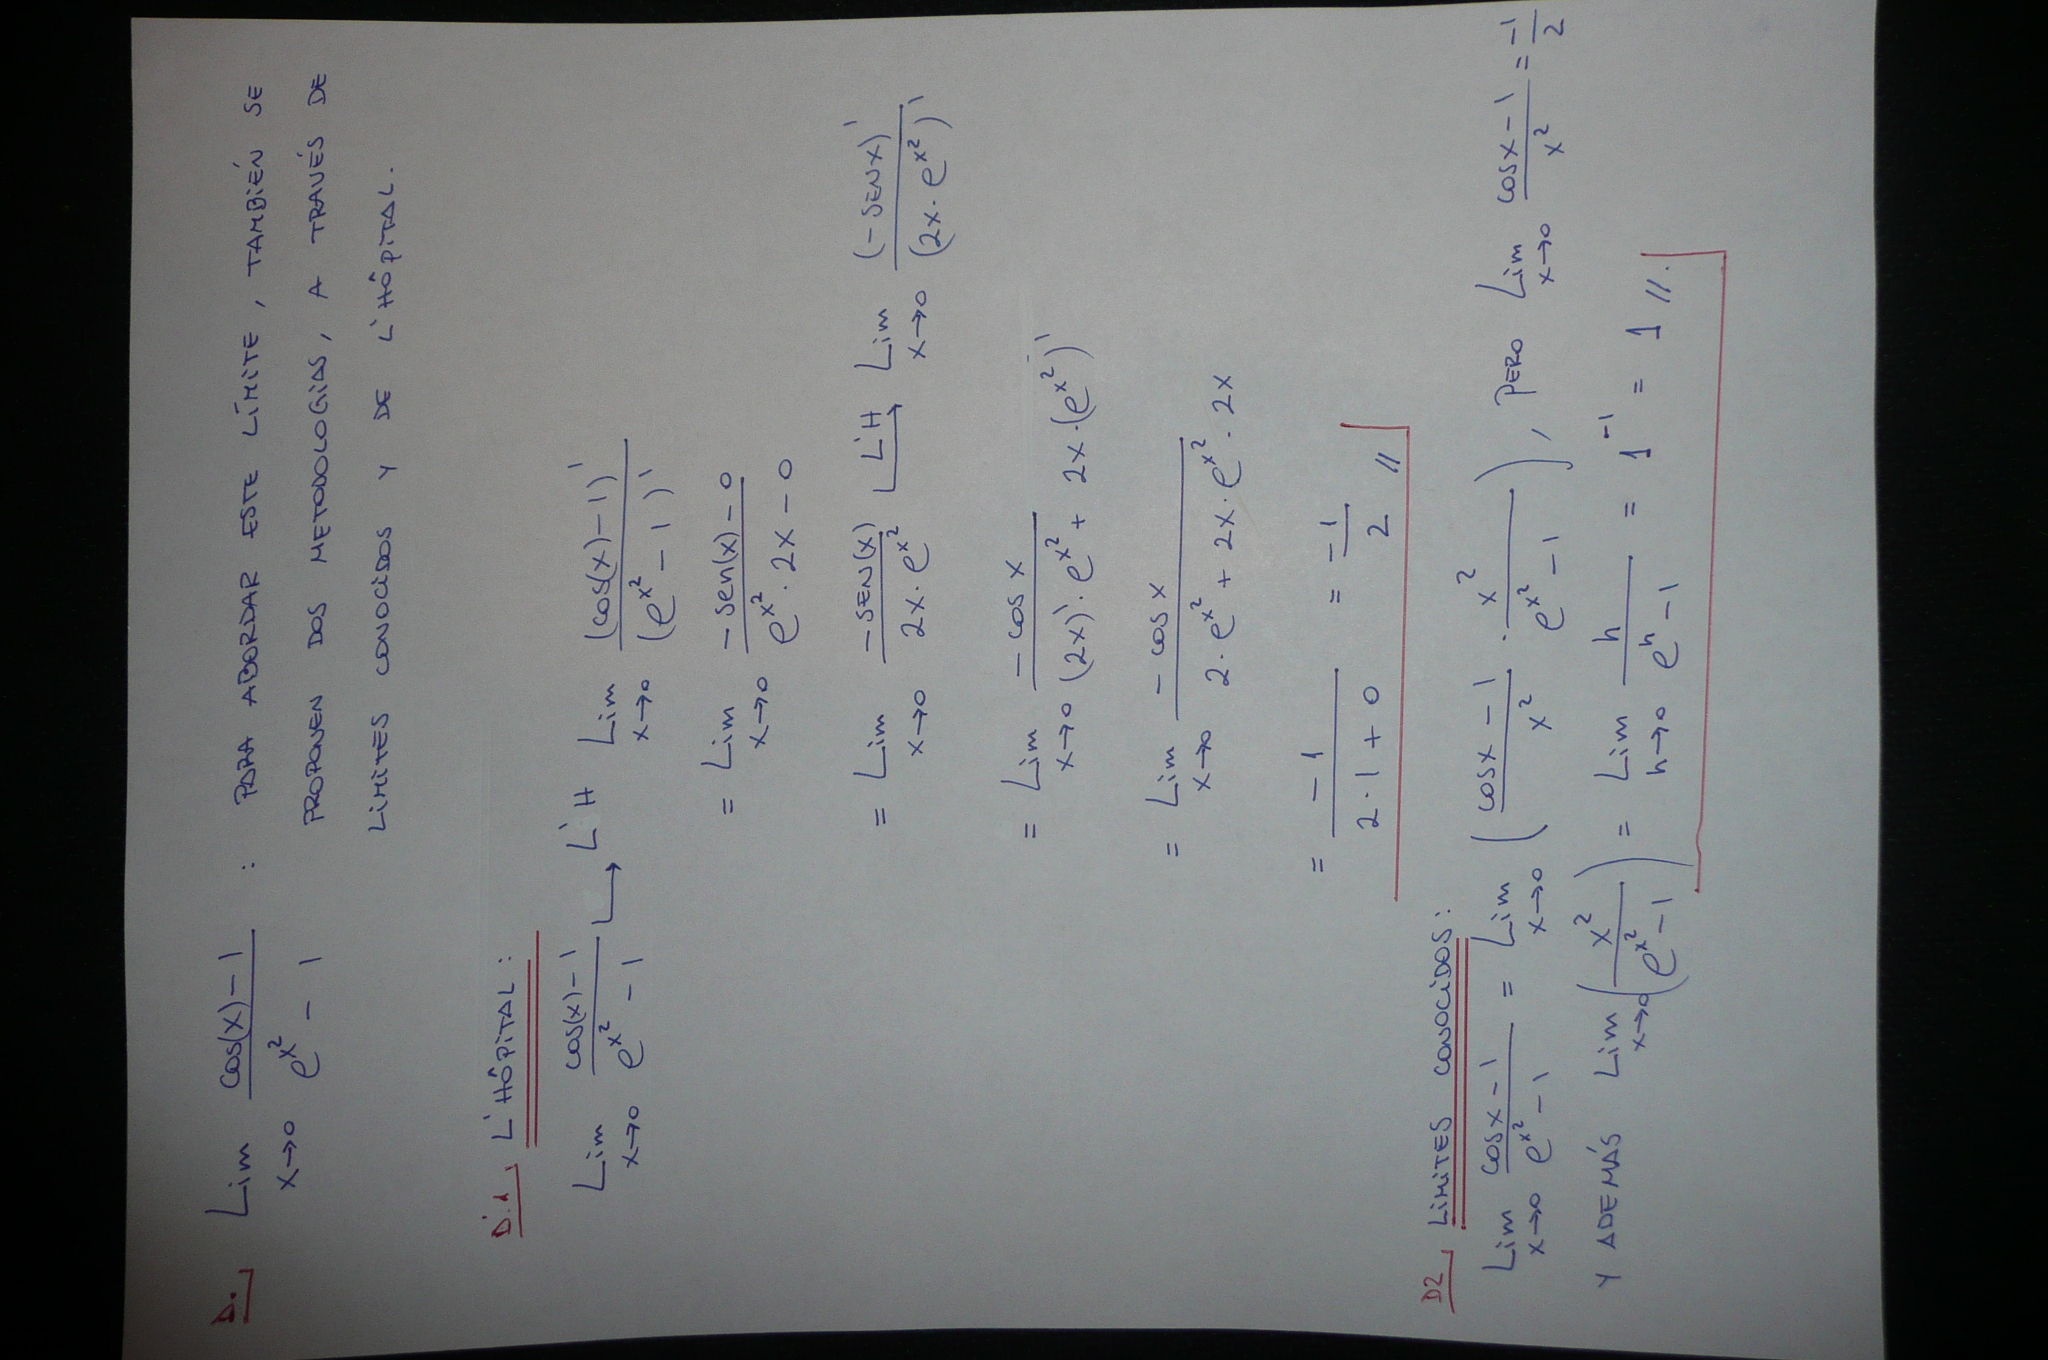 D. Lim x→0 (cos(x)-1)/(e^x² - 1) : PARA ABORDAR ESTE LÍMITE, TAMBIÉN SE
PROPONEN DOS METODOLOGIAS, A TRAVÉS DE
LIMITES CONOCIDOS Y DE L'HÔPITAL.
D.1, L'HÔPITAL:
Lim x→0 (cos(x)-1)/(e^x² - 1) → L'H Lim x→0 (cos(x)-1)'/(e^x² - 1)'
= Lim x→0 (-sen(x)-0)/(e^x² · 2x - 0)
= Lim x→0 (-SEN(x))/(2x · e^x²) L'H Lim x→0 (-SENx)'/(2x · e^x²)'
= Lim x→0 (-cos x)/((2x)' · e^x² + 2x · (e^x²)')
= Lim x→0 (-cos x)/(2 · e^x² + 2x · e^x² · 2x)
= -1/(2 · 1 + 0) = -1/2 //
D2, LIMITES CONOCIDOS:
Lim x→0 (cosx - 1)/(e^x² - 1) = Lim x→0 ((cosx - 1)/x² · x²/(e^x² - 1)), PERO Lim x→0 (cosx - 1)/x² = -1/2
Y ADEMÁS Lim x→0 (x²/(e^x² - 1)) = Lim h→0 h/(e^h - 1) = 1^-1 = 1 //.